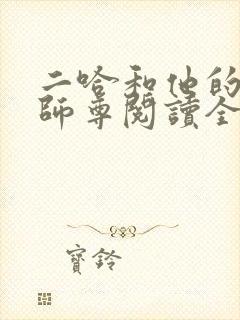 二哈和他的
師尊閱讀全
寶鈴